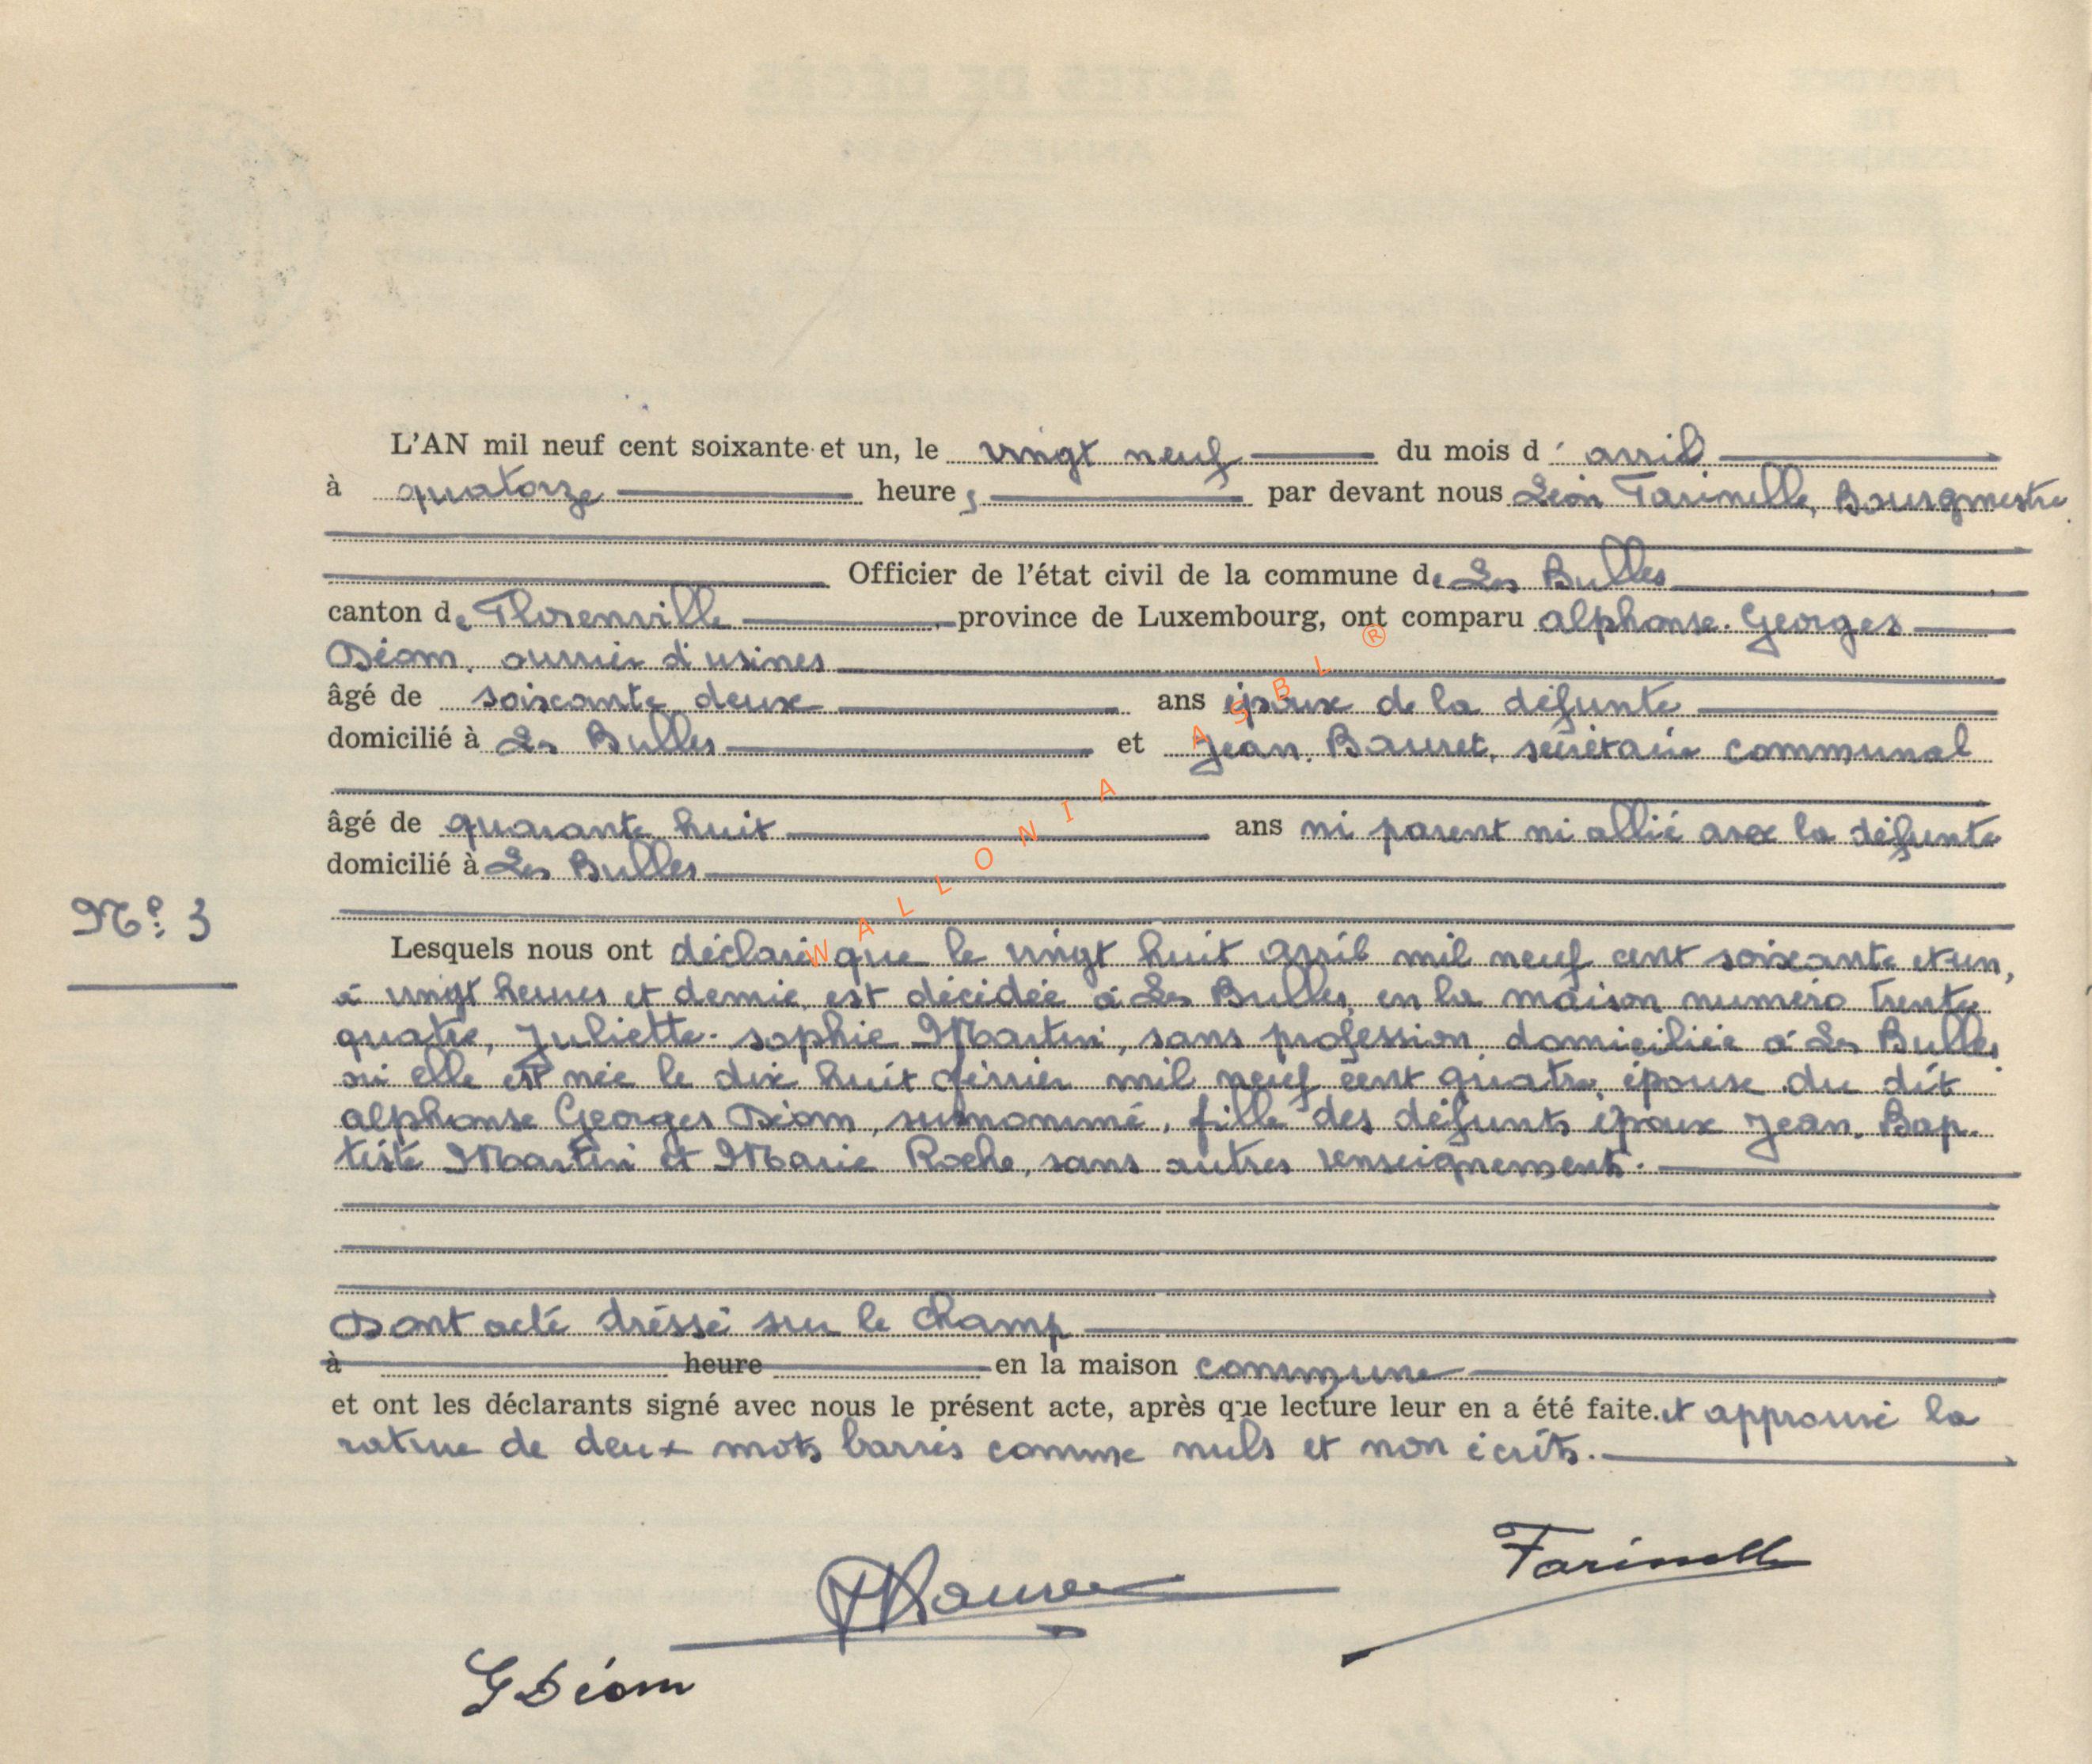 L'AN mil neuf cent soixante et un, le vingt neuf du mois d' avril
à quatorze heures, par devant nous Léon Farinelle, Bourgmestre
Officier de l'état civil de la commune de Les Bulles
canton de Florenville province de Luxembourg, ont comparu Alphonse-Georges
Déom, ouvrier d'usines
âgé de soixante deux ans époux de la défunte
domicilié à Les Bulles et Jean Bauret, secrétaire communal
âgé de quarante huit ans ni parent ni allié avec la défunte
domicilié à Les Bulles
N° 3
Lesquels nous ont déclaré que le vingt huit avril mil neuf cent soixante et un,
à vingt heures et demie, est décédée à Les Bulles, en la maison numéro trente
quatre, Juliette-Sophie Martin, sans profession, domiciliée à Les Bulles
où elle est née le dix huit février mil neuf cent quatre, épouse du dit
Alphonse Georges Déom, surnommé, fille des défunts époux Jean-Bap-
tiste Martin et Marie Roche, sans autres renseignements.
Dont acte dressé sur le champ
à heure en la maison commune
et ont les déclarants signé avec nous le présent acte, après que lecture leur en a été faite. et approuvé la
rature de deux mots barrés comme nuls et non écrits.
Farinelle
G Déom
WALLONIA ASBL ®